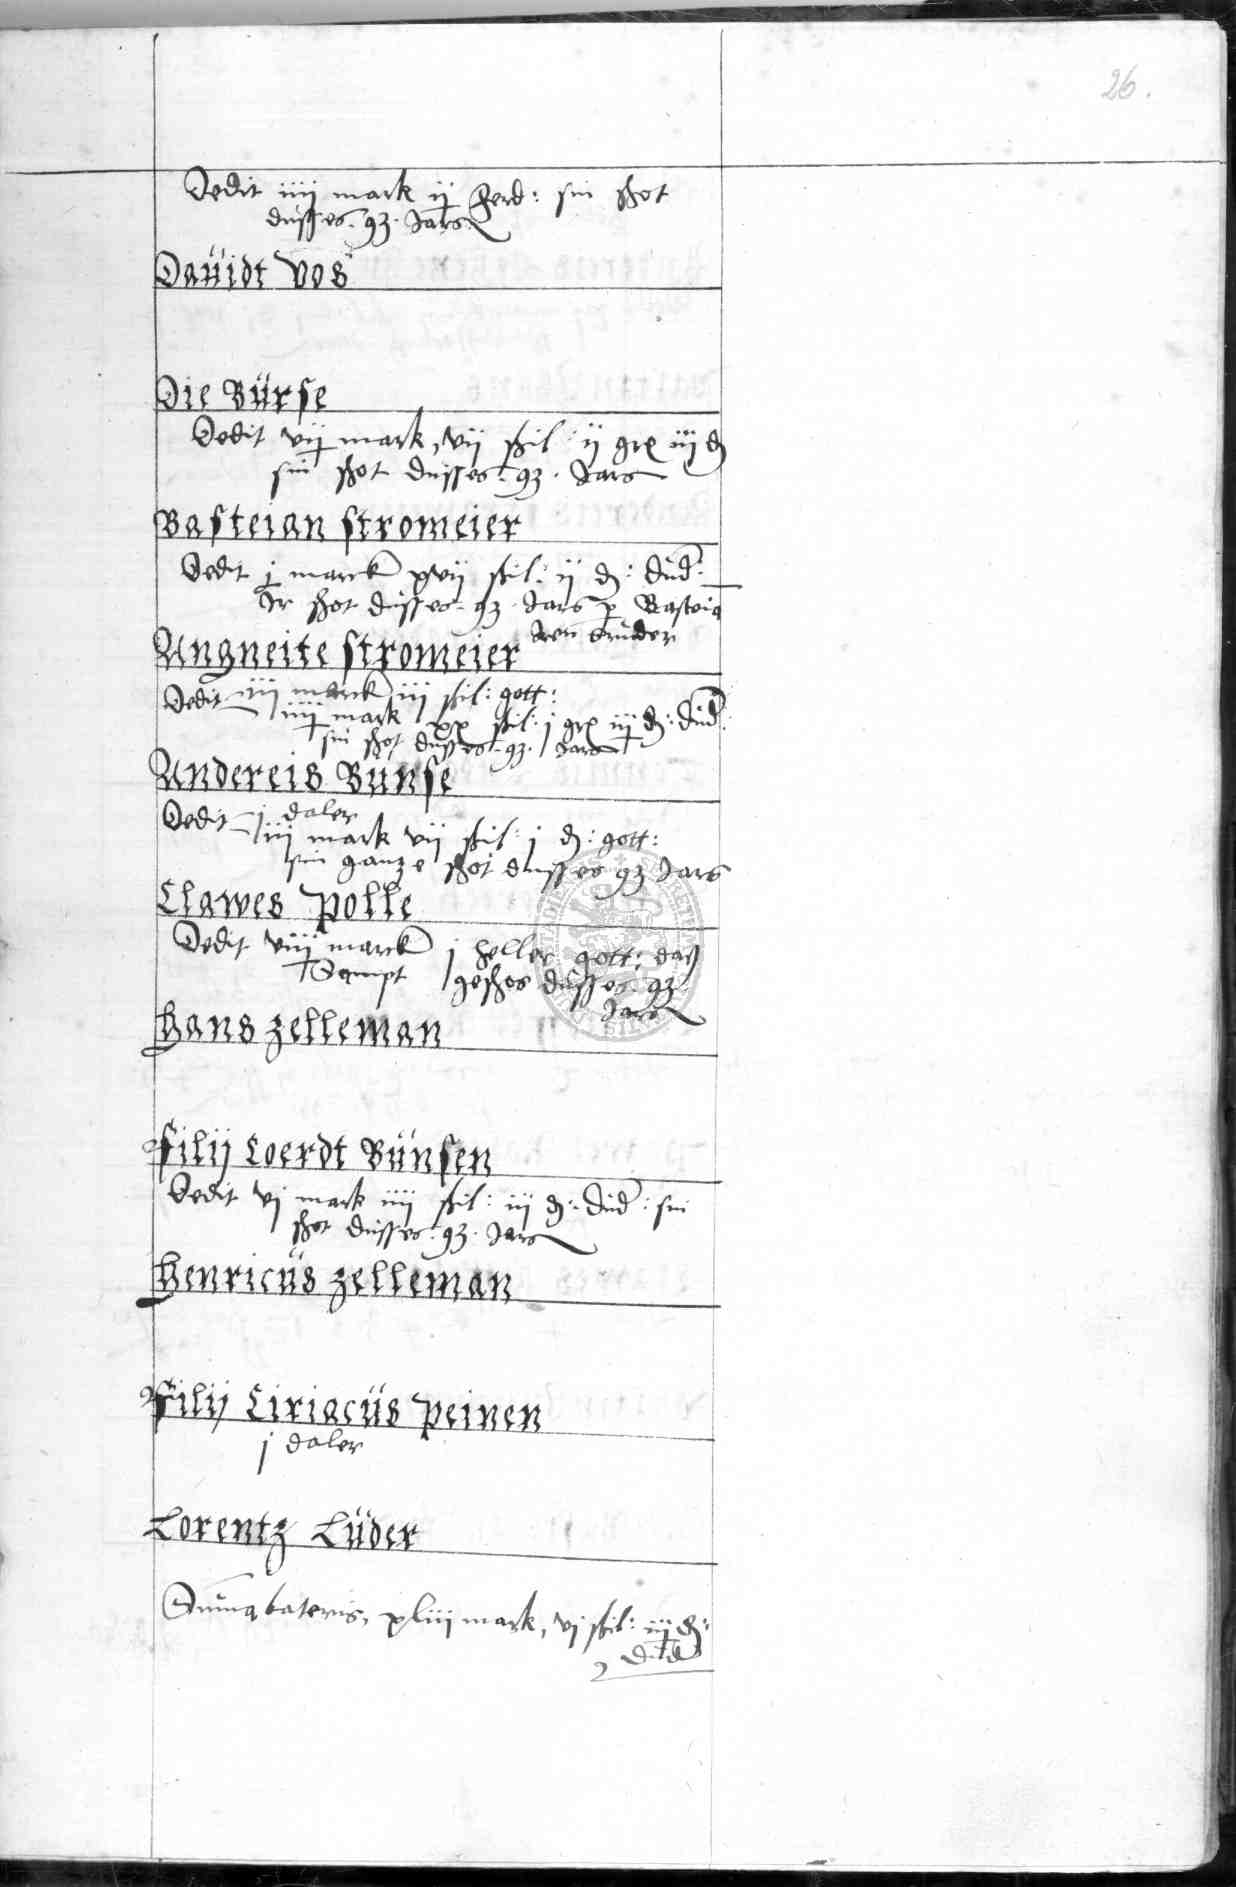 26.
Dedit iiij mark ij ferd: sin schot
dusses 93 Jars
Dauidt Vos
Die Bürse
Dedit vij mark, vij schil: ij gr iiij d
sin schot dusses 93. Jars
Basteian stromeier
Dedit j marck xvij schil: ij d: dud:
Ir schot dusses 93 Jars p Basteia
Iren bruder
Angneite stromeier
Dedit iiij marck iij schil: gott:
iiij mark xx schil: j gr iij d: dud:
sin schot dusses 93. Jars
Andereis Bunse
Dedit j daler
iij mark vij schil: j d: gott:
sin ganze schot dusses 93 Jars
Clawes Polle
Dedit viij marck j heller gott: daß
Sampt geschos dusses 93.
Jars
Hans Zelleman
Filij Coerdt Bünsen
Dedit vj mark iiij schil: iij d: dud: sin
schot dusses 93. Jars
Henricüs Zelleman
Filij Ciriacüs Peinen
j daler
Lorentz Lüder
Suma lateris, xliij mark, vj schil: iij d: